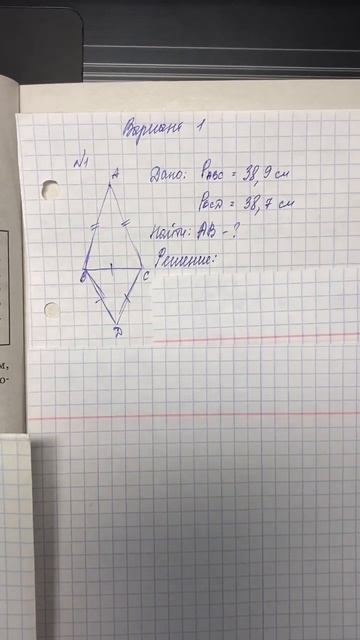 Вариант 1
№1
A
Дано: PABC = 38,9 см
PBCD = 38,7 см
Найти: AB - ?
B
C
Решение:
D
м,
о-